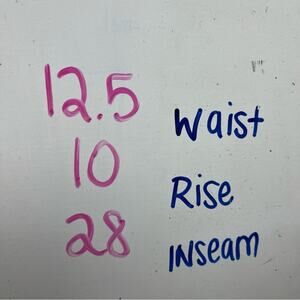 12.5 Waist
10 Rise
28 Inseam